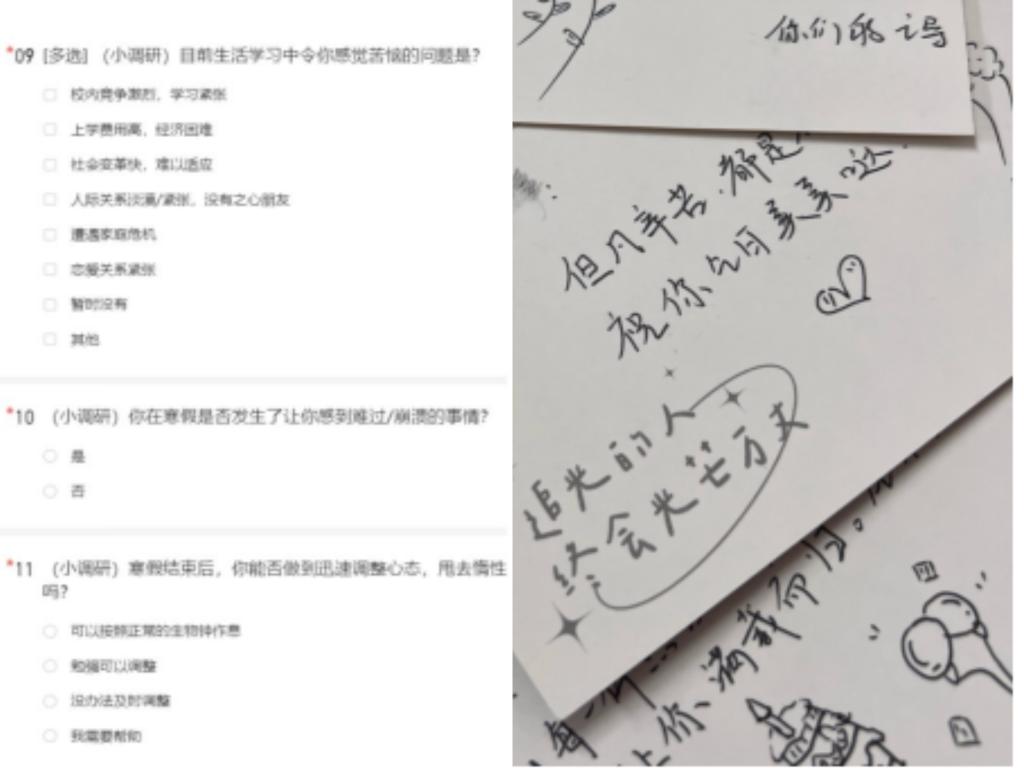 *09 [多选] （小调研）目前生活学习中令你感觉苦恼的问题是？
校内竞争激烈，学习紧张
上学费用高，经济困难
社会变革快，难以适应
人际关系淡漠/紧张，没有之心朋友
遭遇家庭危机
恋爱关系紧张
暂时没有
其他
*10 （小调研）你在寒假是否发生了让你感到难过/崩溃的事情？
是
否
*11 （小调研）寒假结束后，你能否做到迅速调整心态，甩去惰性
吗？
可以按照正常的生物钟作息
勉强可以调整
没办法及时调整
我需要帮助
但凡辛苦，都是
祝你今日美美哒
追光的人
终会光芒万丈
你满载而归。